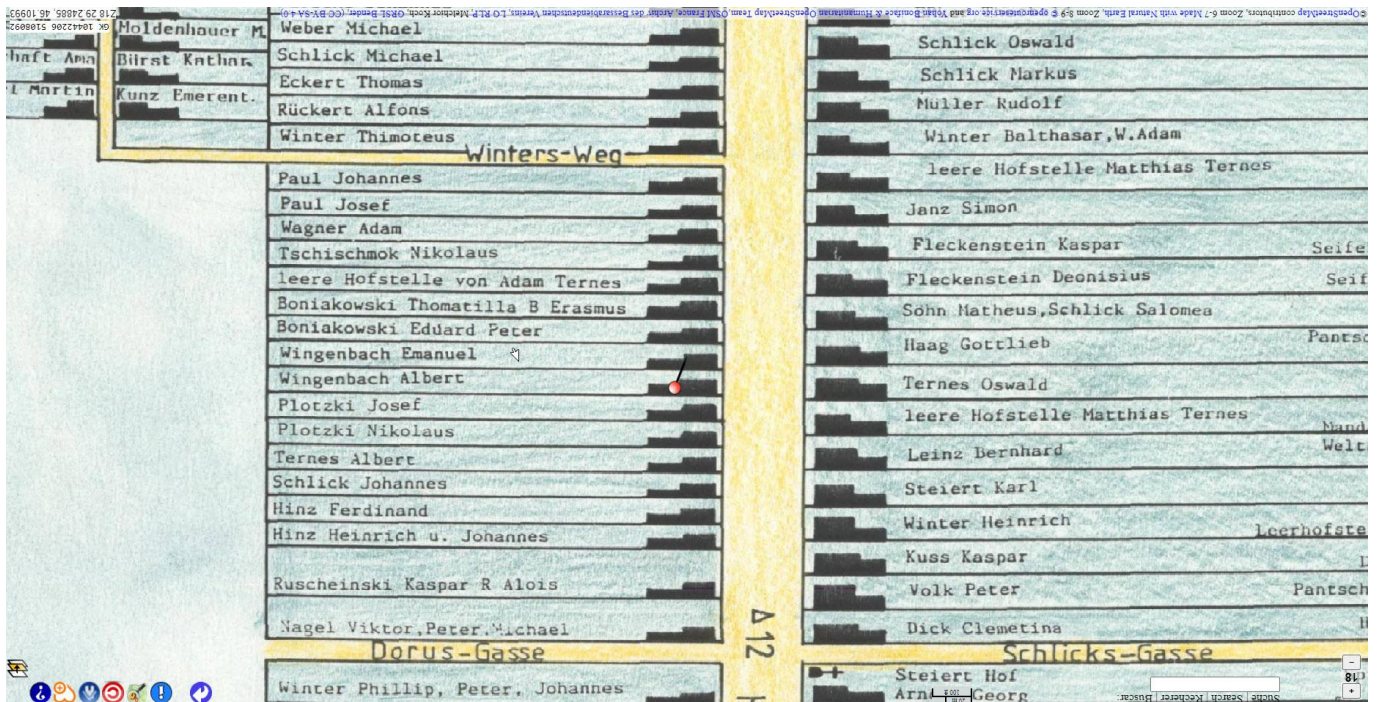 ©OpenStreetMap contributors, Zoom 6-7 Made with Natural Earth, Zoom 8-9 © opentouren.site.org and Yohan Boniface & Humanitarian OpenStreetMap Team, OSM France, Archiv des Bessarabiendeutschen Vereins, LO RLP Melchior Koch, GRSI Bender, (CC BY-SA 4.0)
Moldenhauer M
haft Ama
Bürst Kathar.
l Martin
Kunz Emerent.
Weber Michael
Schlick Michael
Eckert Thomas
Rückert Alfons
Winter Thimoteus
Winters-Weg
Paul Johannes
Paul Josef
Wagner Adam
Tschischmok Nikolaus
leere Hofstelle von Adam Ternes
Boniakowski Thomatilla B Erasmus
Boniakowski Eduard Peter
Wingenbach Emanuel
Wingenbach Albert
Plotzki Josef
Plotzki Nikolaus
Ternes Albert
Schlick Johannes
Hinz Ferdinand
Hinz Heinrich u. Johannes
Ruscheinski Kaspar R Alois
Nagel Viktor,Peter,Michael
Dorus-Gasse
Winter Phillip, Peter, Johannes
A 12
Schlick Oswald
Schlick Markus
Müller Rudolf
Winter Balthasar,W.Adam
leere Hofstelle Matthias Ternes
Janz Simon
Fleckenstein Kaspar
Seife
Fleckenstein Deonisius
Seif
Söhn Matheus,Schlick Salomea
Haag Gottlieb
Pantsc
Ternes Oswald
leere Hofstelle Matthias Ternes
Mand
Leinz Bernhard
Welt
Steiert Karl
Winter Heinrich
Leerhofste
Kuss Kaspar
Volk Peter
Pantsch
Dick Clemetina
Schlicks-Gasse
Steiert Hof
Georg
18
Suche Search Rechercher Buscar: